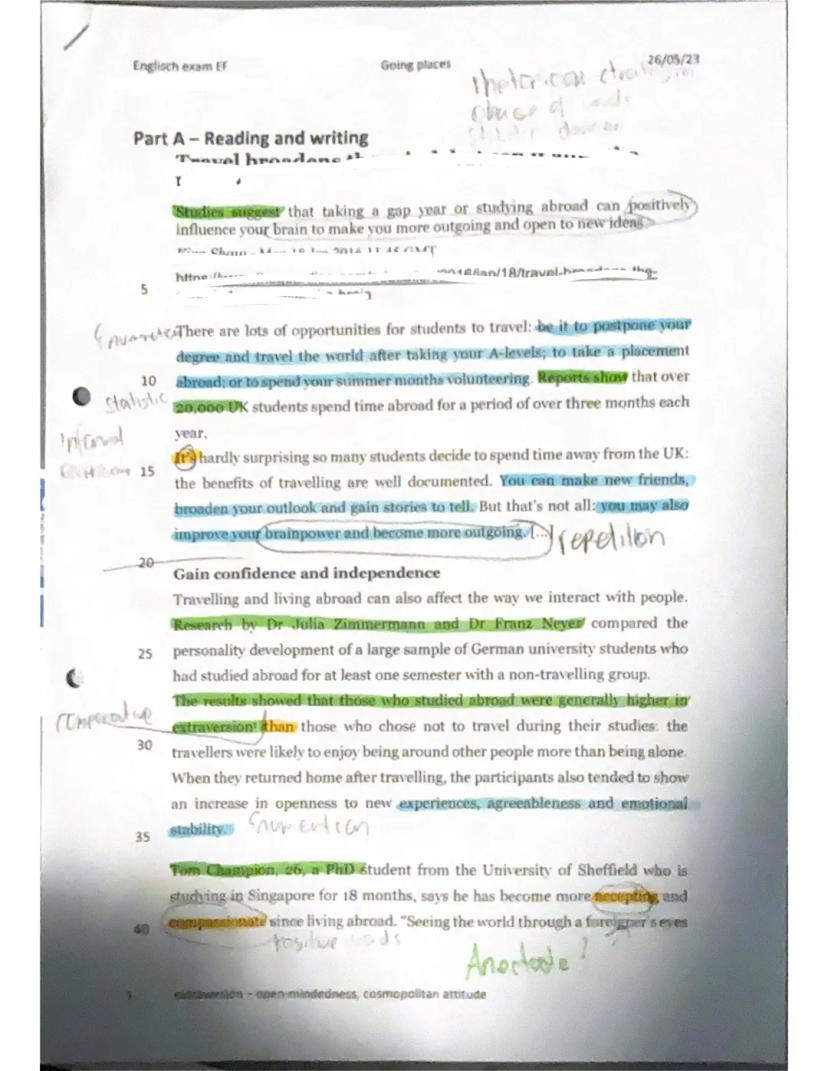 Englisch exam EF Going places 26/05/23
Part A – Reading and writing
Travel broadens
Studies suggest that taking a gap year or studying abroad can positively
influence your brain to make you more outgoing and open to new ideas
5
There are lots of opportunities for students to travel: be it to postpone your
degree and travel the world after taking your A-levels; to take a placement
10 abroad; or to spend your summer months volunteering. Reports show that over
statistic 20,000 UK students spend time abroad for a period of over three months each
year.
Informal
It's hardly surprising so many students decide to spend time away from the UK:
15 the benefits of travelling are well documented. You can make new friends,
broaden your outlook and gain stories to tell. But that's not all: you may also
improve your brainpower and become more outgoing. [...] repetition
20
Gain confidence and independence
Travelling and living abroad can also affect the way we interact with people.
Research by Dr Julia Zimmermann and Dr Franz Neyer compared the
25 personality development of a large sample of German university students who
had studied abroad for at least one semester with a non-travelling group.
The results showed that those who studied abroad were generally higher in
comparative extraversion¹ than those who chose not to travel during their studies: the
30 travellers were likely to enjoy being around other people more than being alone.
When they returned home after travelling, the participants also tended to show
an increase in openness to new experiences, agreeableness and emotional
35 stability.
Tom Champion, 26, a PhD student from the University of Sheffield who is
studying in Singapore for 18 months, says he has become more accepting and
40 compassionate since living abroad. "Seeing the world through a foreigner's eyes
positive words
Anectode!
1 extraversion – open-mindedness, cosmopolitan attitude